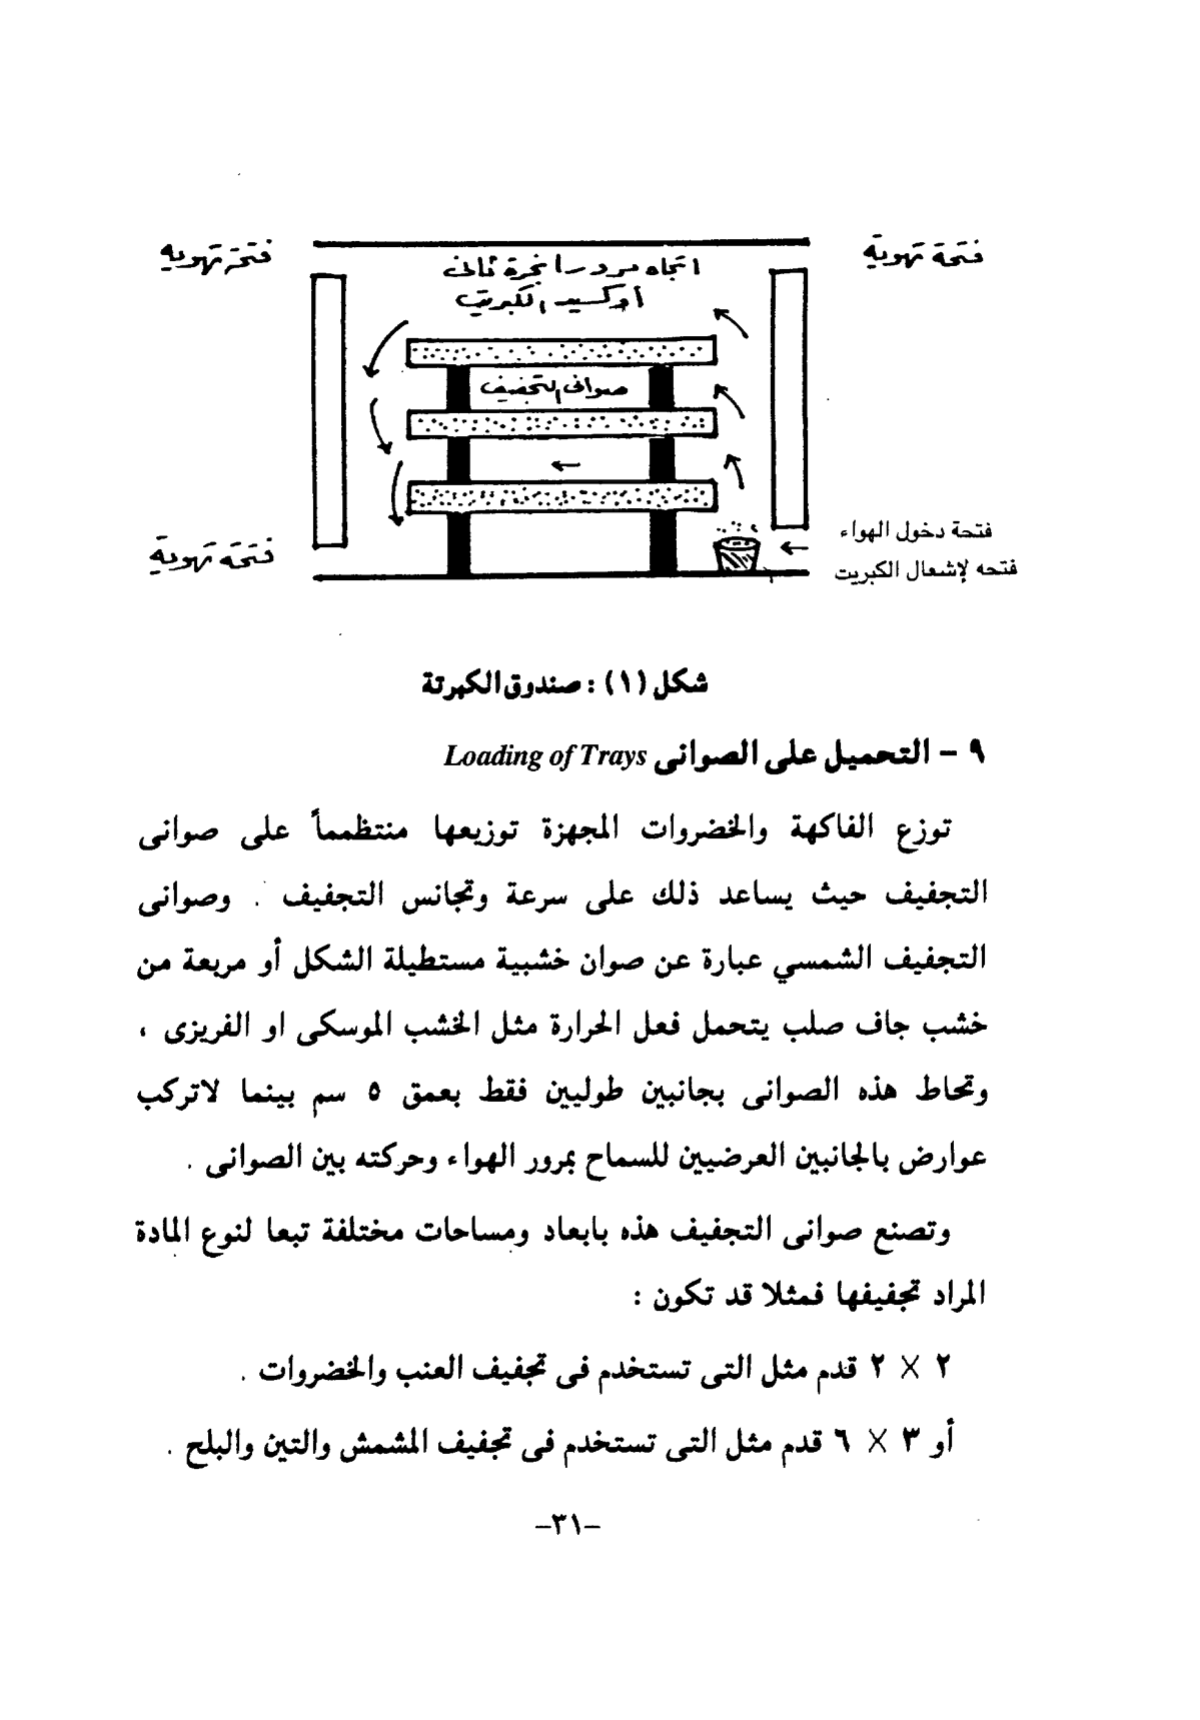 فتحة تهوية
فتحة تهوية
اتجاه مرور أبخرة ثانى
أوكسيد الكبريت
صوانى التجفيف
فتحة دخول الهواء
فتحه لإشعال الكبريت
فتحة تهوية
شكل (١) : صندوق الكبرتة
٩ – التحميل على الصوانى Loading of Trays
توزع الفاكهة والخضروات المجهزة توزيعها منتظمماً على صوانى
التجفيف حيث يساعد ذلك على سرعة وتجانس التجفيف . وصوانى
التجفيف الشمسي عبارة عن صوان خشبية مستطيلة الشكل أو مربعة من
خشب جاف صلب يتحمل فعل الحرارة مثل الخشب الموسكى او الفريزى ،
وتحاط هذه الصوانى بجانبين طوليين فقط بعمق ٥ سم بينما لاتركب
عوارض بالجانبين العرضيين للسماح بمرور الهواء وحركته بين الصوانى .
وتصنع صوانى التجفيف هذه بابعاد ومساحات مختلفة تبعا لنوع المادة
المراد تجفيفها فمثلا قد تكون :
٢ × ٢ قدم مثل التى تستخدم فى تجفيف العنب والخضروات .
أو ٣ × ٦ قدم مثل التى تستخدم فى تجفيف المشمش والتين والبلح .
–٣١–